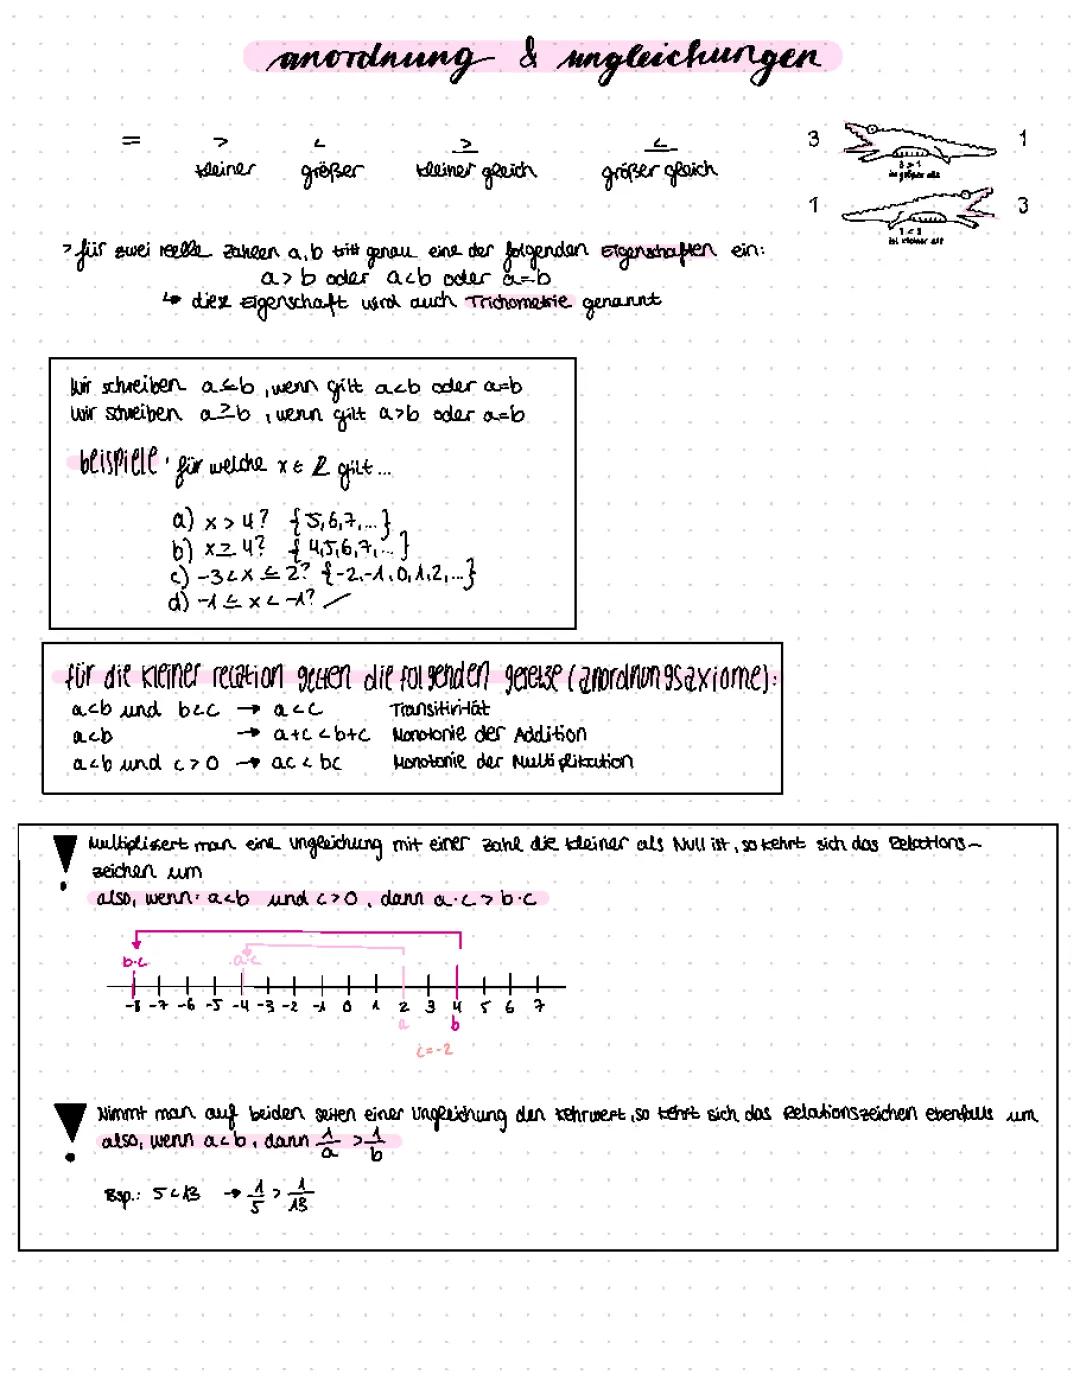 anordnung & ungleichungen
= > < ≥ ≤
kleiner größer kleiner gleich größer gleich
3 1
3 > 1
ist größer als
1 3
1 < 3
ist kleiner als
> für zwei reelle Zahlen a, b tritt genau eine der folgenden Eigenschaften ein:
a > b oder a < b oder a = b
↳ diese Eigenschaft wird auch Trichometrie genannt
wir schreiben a ≤ b, wenn gilt a < b oder a = b
wir schreiben a ≥ b, wenn gilt a > b oder a = b
beispiele: für welche x ∈ ℤ gilt...
a) x > 4? {5,6,7,...}
b) x ≥ 4? {4,5,6,7,...}
c) -3 < x ≤ 2? {-2,-1,0,1,2,...}
d) -1 ≤ x < -1? /
für die kleiner relation gelten die folgenden gesetze (anordnungsaxiome):
a < b und b < c → a < c Transitivität
a < b → a + c < b + c Monotonie der Addition
a < b und c > 0 → ac < bc Monotonie der Multiplikation
! Multipliziert man eine Ungleichung mit einer Zahl die kleiner als Null ist, so kehrt sich das Relations-
zeichen um
also, wenn: a < b und c > 0, dann a·c > b·c
b·c a·c
-8 -7 -6 -5 -4 -3 -2 -1 0 1 2 3 4 5 6 7
a b
c = -2
! Nimmt man auf beiden seiten einer Ungleichung den Kehrwert, so kehrt sich das Relationszeichen ebenfalls um
also, wenn a < b, dann 1/a > 1/b
Bsp.: 5 < 13 → 1/5 > 1/13